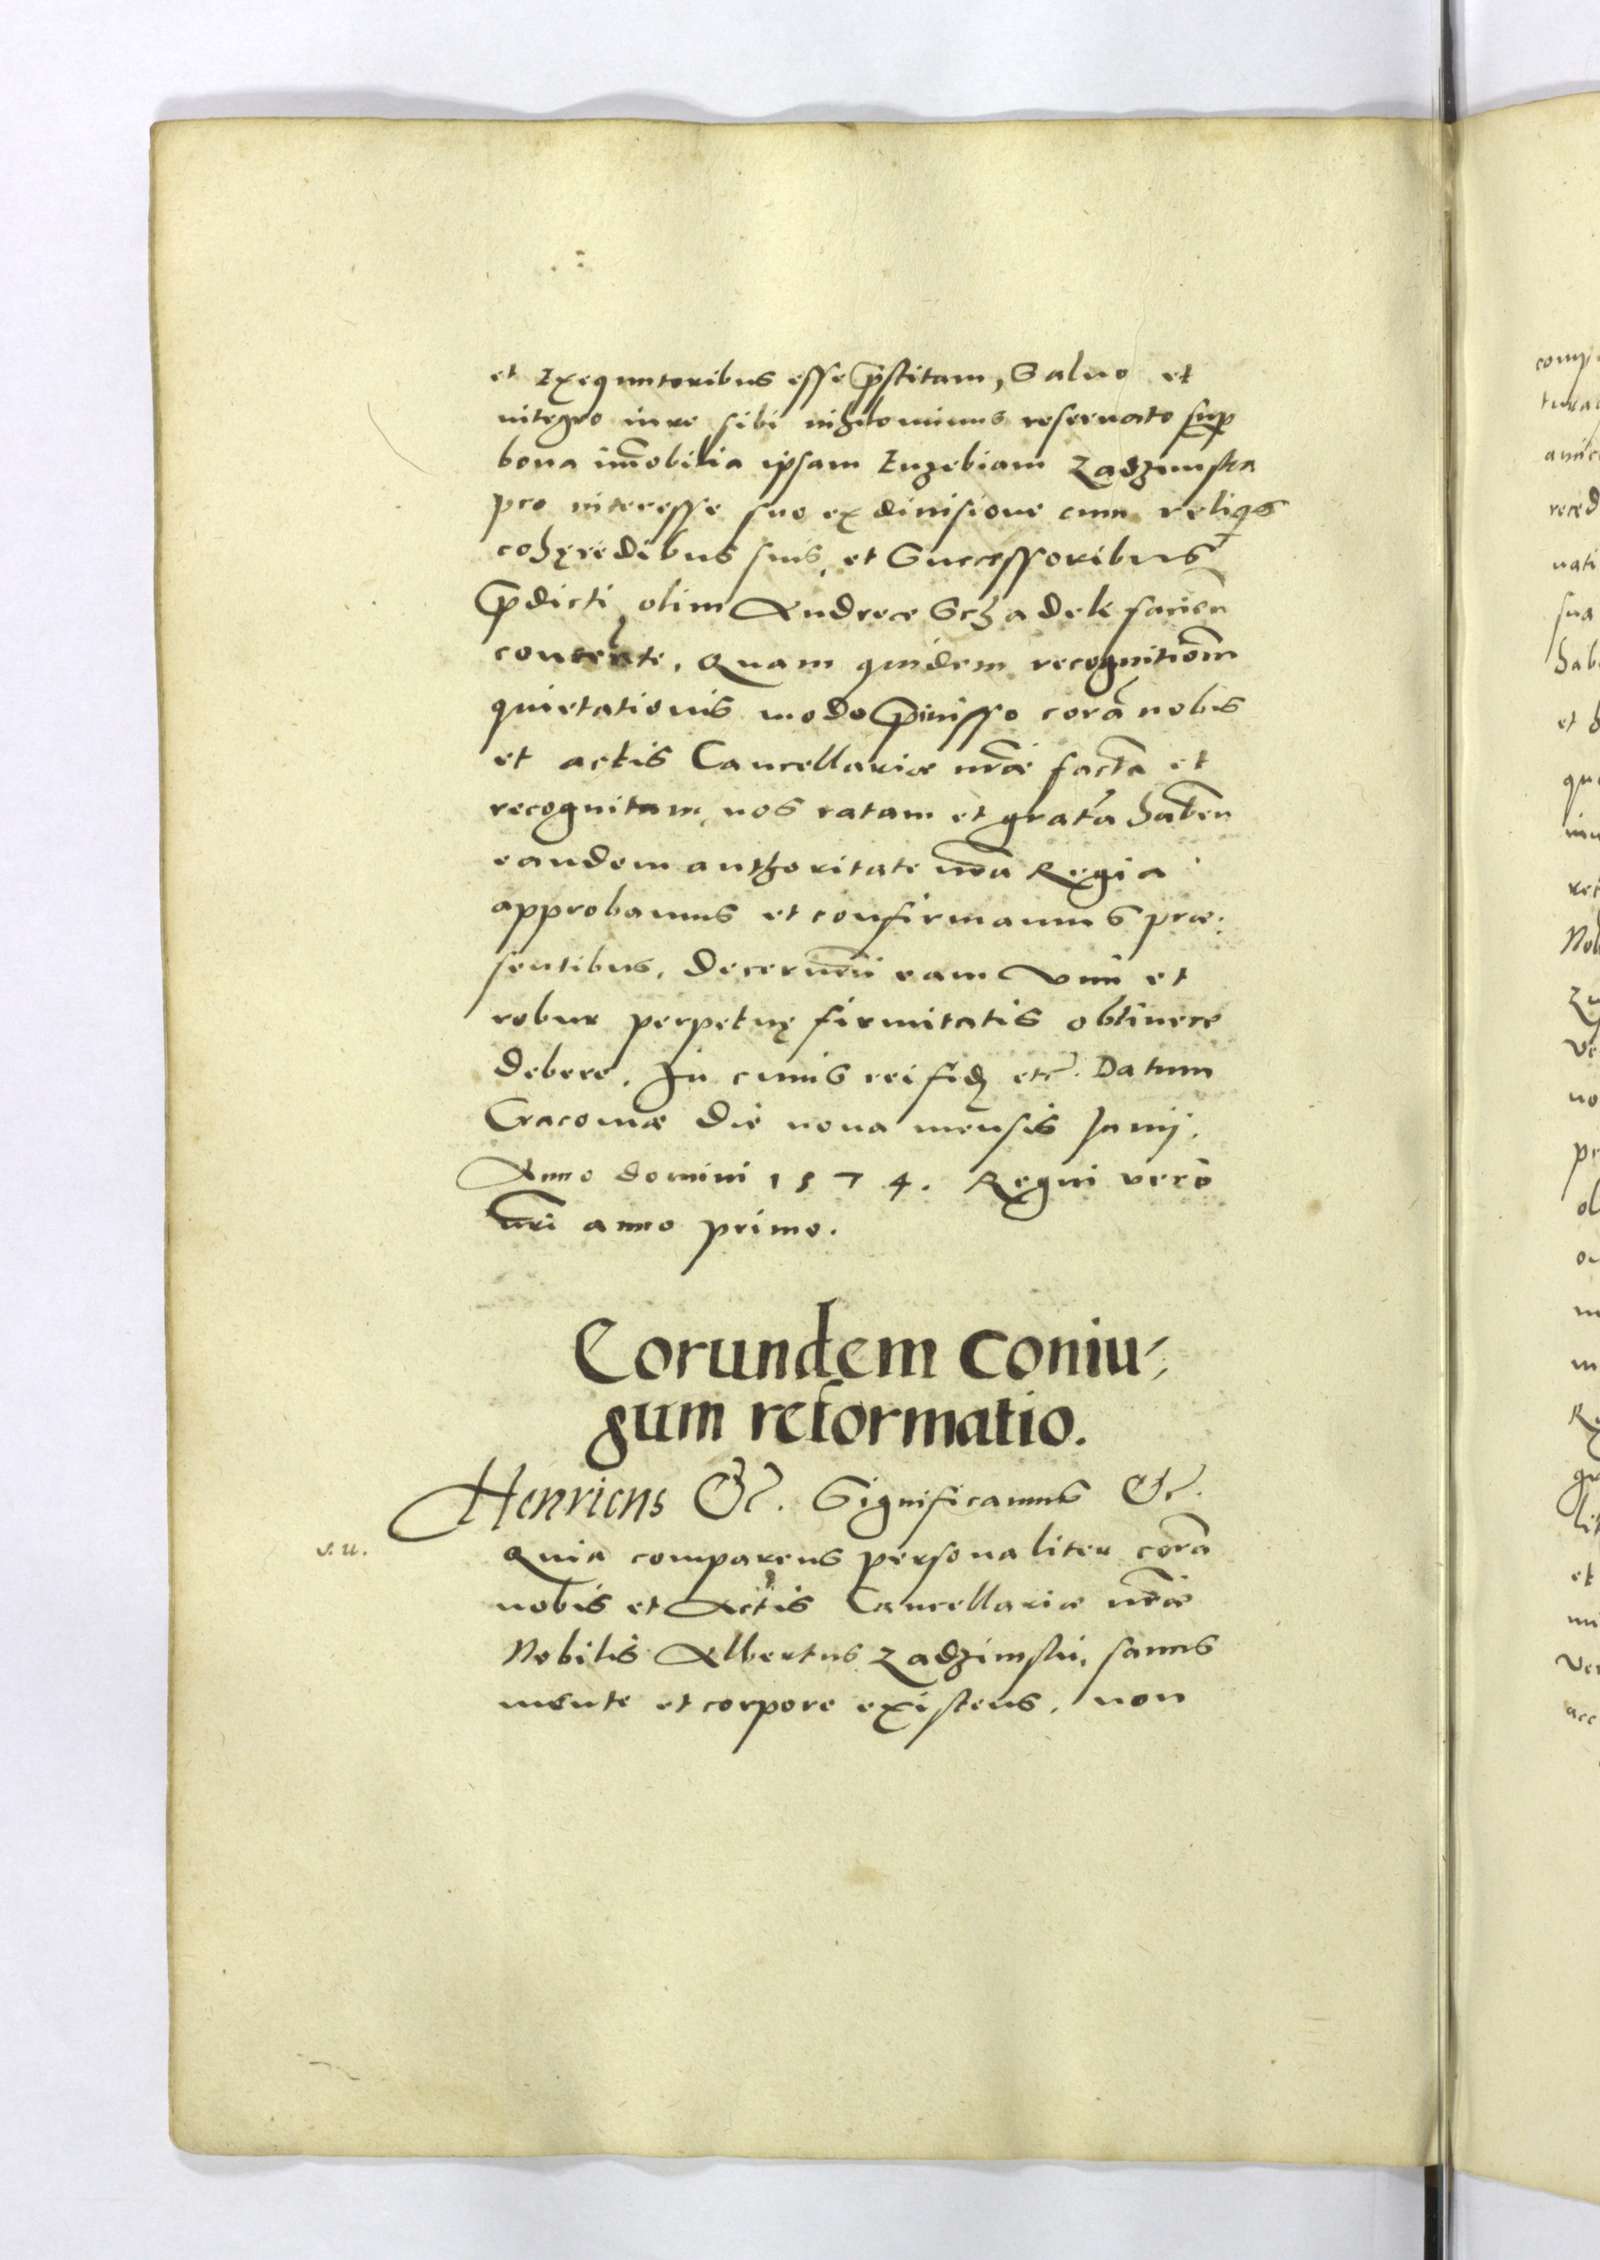 et Exequutoribus esse p̃stitam, Saluo et
integro iure sibi nihilominus reseruato sup
bona im̃obilia ipsam Euzebiam Zadzimska
pro interesse suo ex diuisione cum reliqs
cohęredibus suis, et Successoribus
p̃dicti olim Andreæ Schadek
Quam quidem recognitiom̃
quietationis modo p̃misso corã nobis
et actis Cancellariæ nr̃æ factã et
recognitam, nos ratam et gratã haben
eandem authoritate nr̃a Regia
approbamus et confirmamus præ,
sentibus, decernen̄ eam vim et
robur perpetuę firmitatis obtinere
debere. In cuius rei fidẽ etc. Datum
Cracouiæ die nona mensis Junij.
Anno domini 1574. Regni verò
nr̃i anno primo.
Eorundem coniu,
gum reformatio.
Henricus &c. Significamus &c.
Quia comparens personaliter corã
nobis et Actis Cancellariæ nr̃æ
Nobilis Albertus Zadzimski, sanus
mente et corpore existens, non